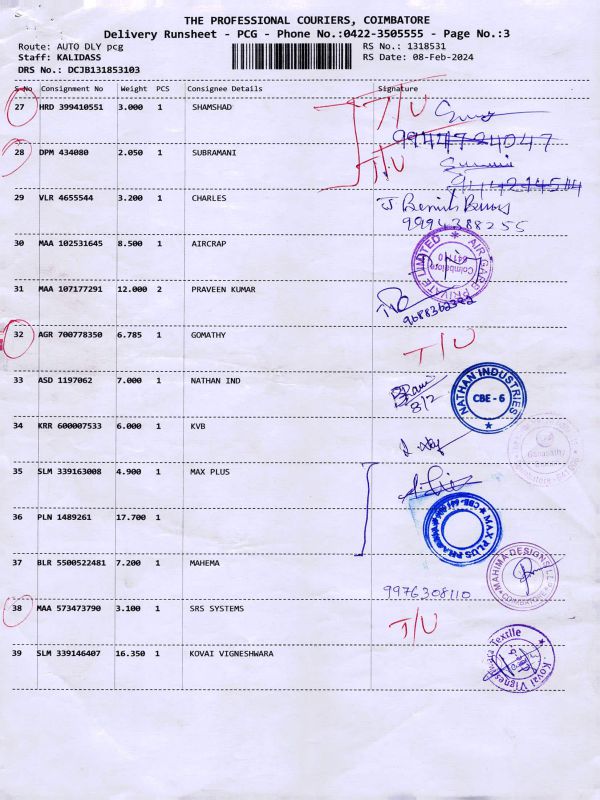 THE PROFESSIONAL COURIERS, COIMBATORE
Delivery Runsheet - PCG - Phone No.:0422-3505555 - Page No.:3
Route: AUTO DLY pcg RS No.: 1318531
Staff: KALIDASS RS Date: 08-Feb-2024
DRS No.: DCJB131853103
S No Consignment No Weight PCS Consignee Details Signature
27 HRD 399410551 3.000 1 SHAMSHAD T/U
9944724047
28 DPM 434080 2.050 1 SUBRAMANI T/U
29 VLR 4655544 3.200 1 CHARLES
9994388255
30 MAA 102531645 8.500 1 AIRCRAP
AIR GARE PRIVATE LIMITED Coimbatore
31 MAA 107177291 12.000 2 PRAVEEN KUMAR
32 AGR 700778350 6.785 1 GOMATHY T/U
33 ASD 1197062 7.000 1 NATHAN IND
8/2
NATHAN INDUSTRIES CBE - 6
34 KRR 600007533 6.000 1 KVB
Ganapathy
35 SLM 339163008 4.900 1 MAX PLUS
36 PLN 1489261 17.700 1
MAX PLUS
37 BLR 5500522481 7.200 1 MAHEMA
MAHIMA DESIGNS LLP COIMBATORE
9976308110
38 MAA 573473790 3.100 1 SRS SYSTEMS T/U
39 SLM 339146407 16.350 1 KOVAI VIGNESHWARA
Textile Kovai